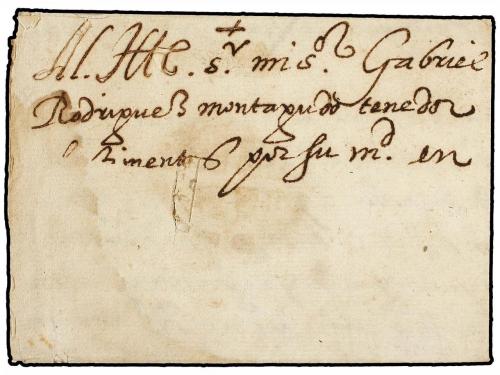 +
Al. Ille. s.r mi s.or Gabriel
Rodriguez montagudo tenedor
timentos por su m.d en